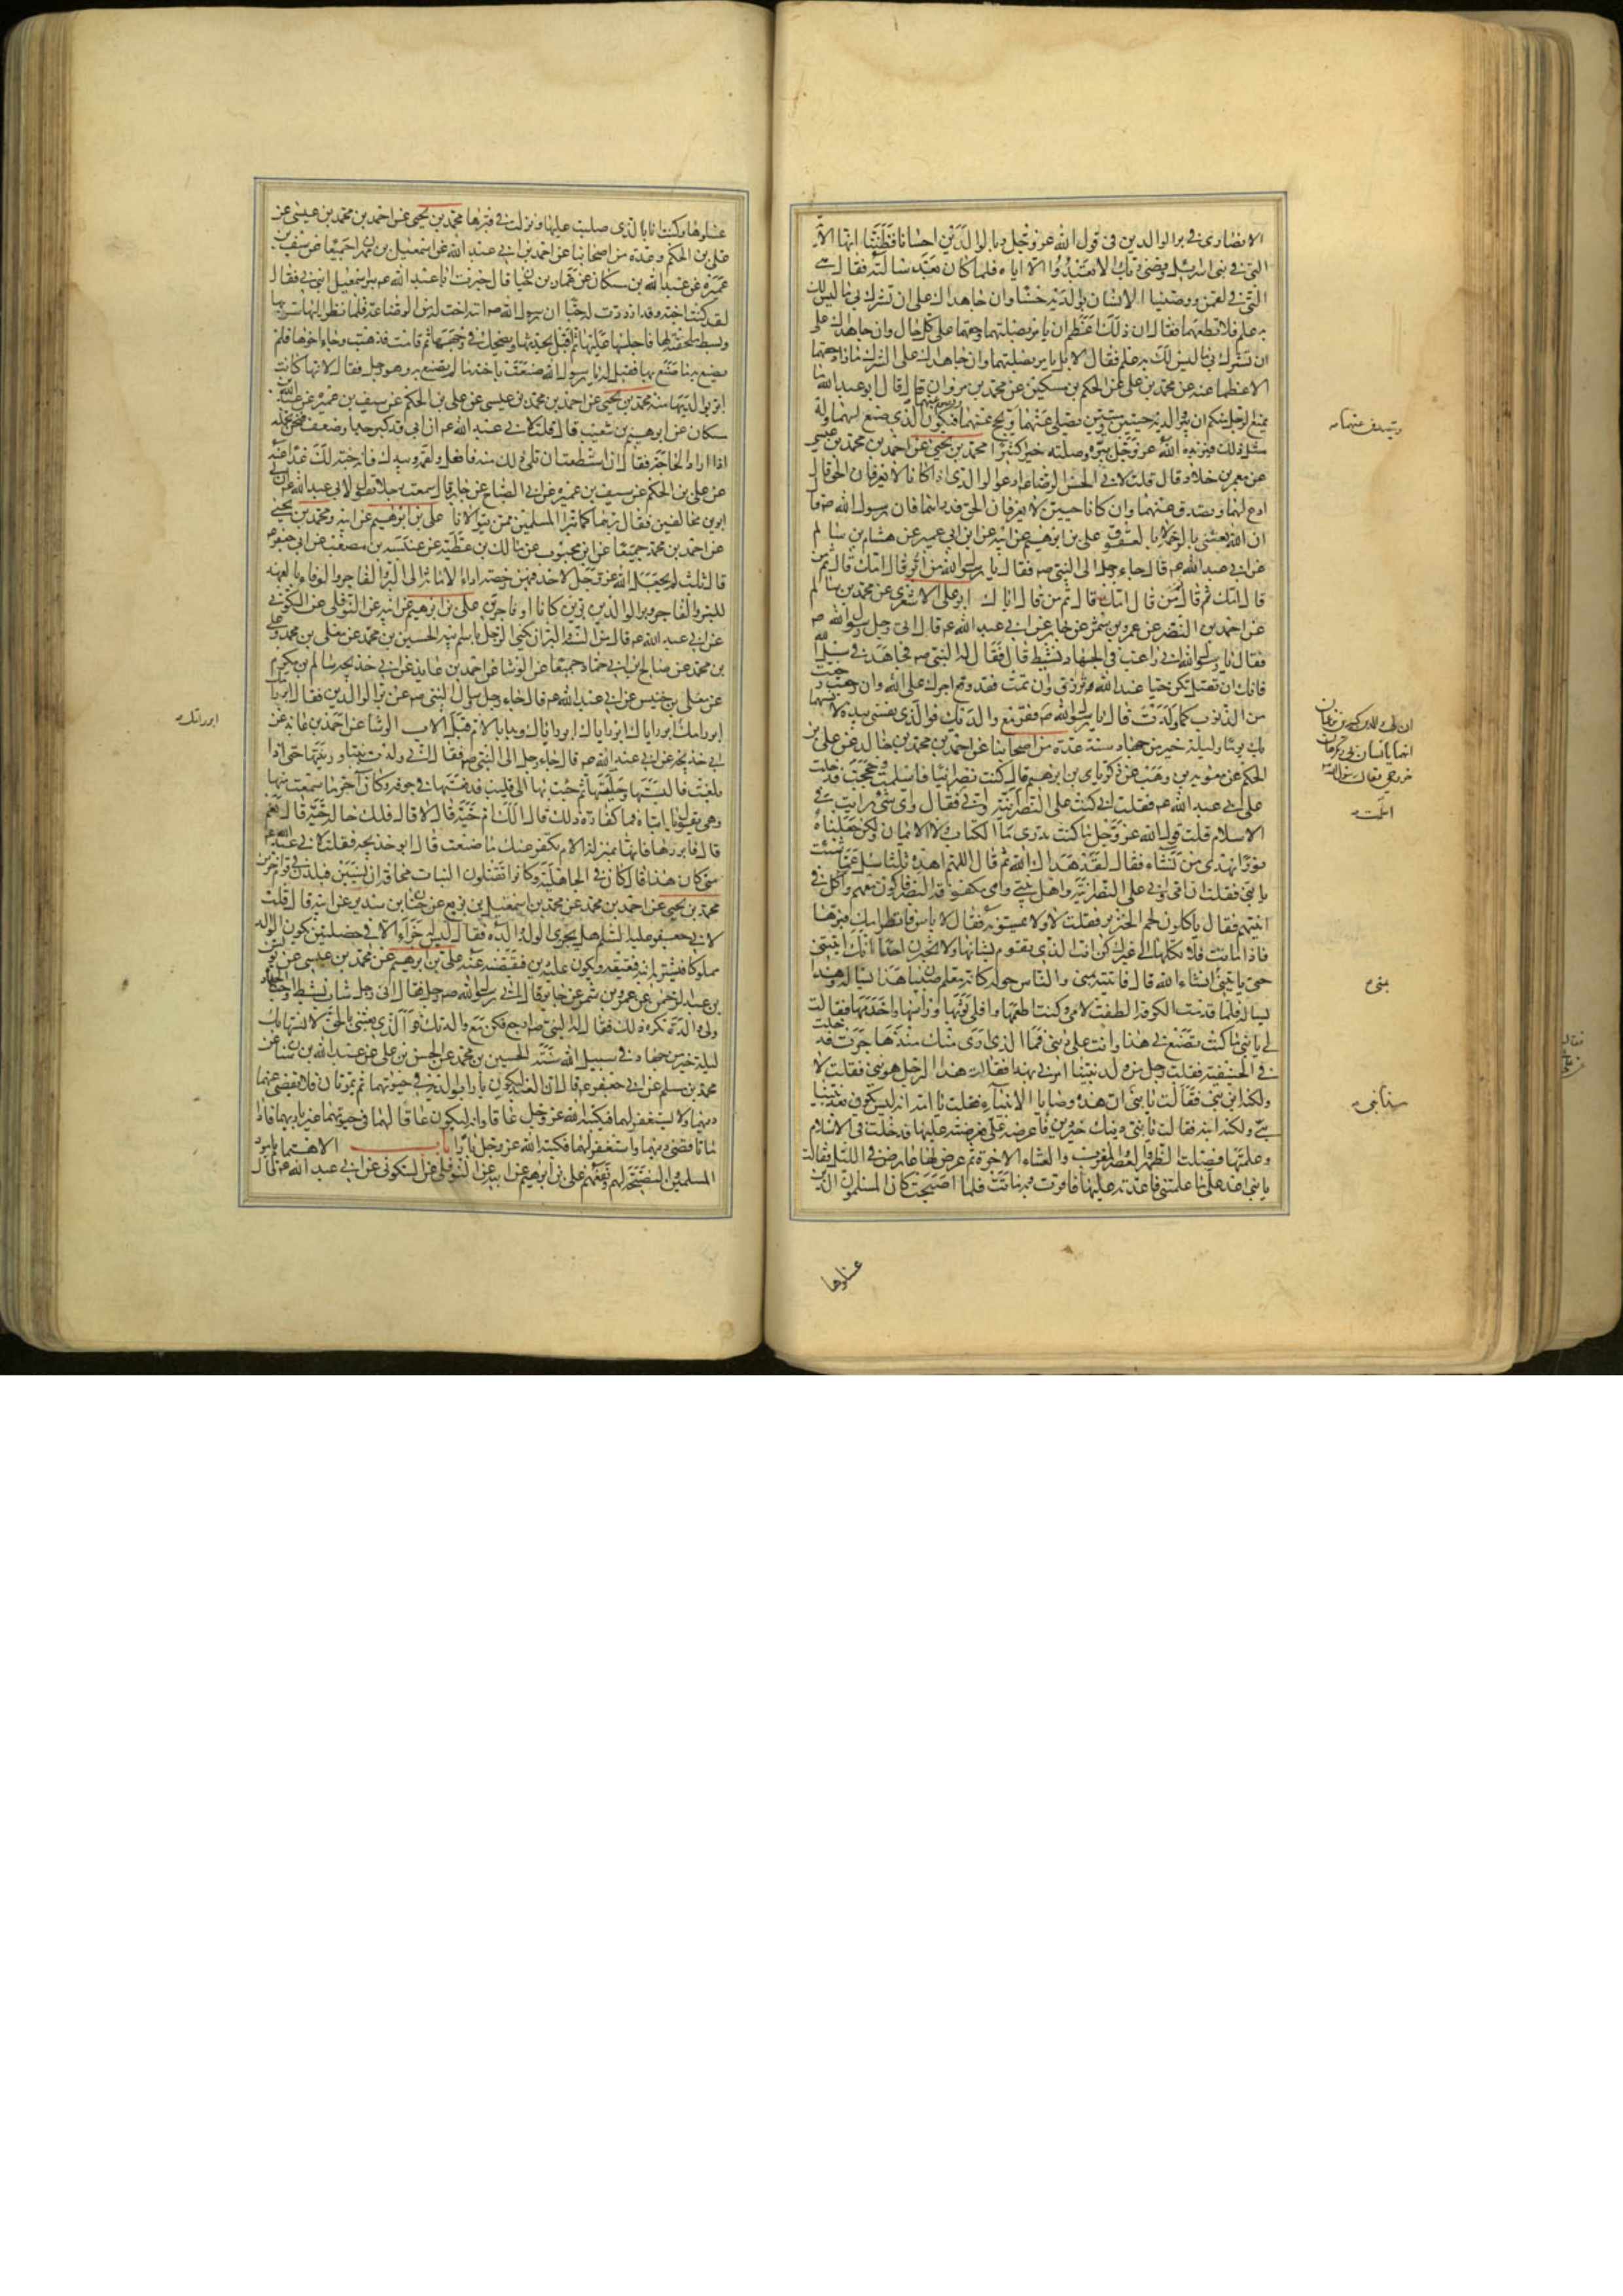 الانصاري في بر الوالدين في قول الله عز وجل وبالوالدين احسانا فظننا انها الآية
التي في بني اسرائيل وقضى ربك الا تعبدوا الا اياه فلما كان بعد سالته فقال هي
التي في لقمن ووصينا الانسان بوالديه حسنا وان جاهداك على ان تشرك بي ما ليس لك
به علم فلا تطعهما فقال ان ذلك اعظم ان يامر بصلتهما وحقهما على كل حال وان جاهداك على
ان تشرك بي ما ليس لك به علم فقال لا بل يامر بصلتهما وان جاهداك على الشرك ما زاد حقهما
الا عظما عنه عن محمد بن علي عن الحكم بن مسكين عن محمد بن مروان قال قال ابو عبد الله ما
يمنع الرجل منكم ان يبر والديه حيين وميتين يصلي عنهما ويحج عنهما ويصوم عنهما فيكون الذي صنع لهما وله
مثل ذلك فيزيده الله عز وجل ببره وصلته خيرا كثيرا محمد بن يحيى عن احمد بن محمد بن عيسى
عن معمر بن خلاد قال قلت لابي الحسن الرضا ادعو لوالدي اذا كانا لا يعرفان الحق قال
ادع لهما وتصدق عنهما وان كانا حيين لا يعرفان الحق فدارهما فان رسول الله ص قال
ان الله بعثني بالرحمة لا بالعقوق علي بن ابرهيم عن ابيه عن ابن ابي عمير عن هشام بن سالم
عن ابي عبد الله ع قال جاء رجل الى النبي ص فقال يا رسول الله من ابر قال امك قال ثم من
قال امك ثم قال من قال امك قال ثم من قال اباك ابو علي الاشعري عن محمد بن سالم
عن احمد بن النضر عن عمرو بن شمر عن جابر عن ابي عبد الله ع قال اتى رجل رسول الله ص
فقال يا رسول الله اني راغب في الجهاد نشيط قال فقال له النبي ص فجاهد في سبيل الله
فانك ان تقتل تكن حيا عند الله ترزق وان تمت فقد وقع اجرك على الله وان رجعت رجعت
من الذنوب كما ولدت قال يا رسول الله ص فقر مع والديك فوالذي نفسي بيده لانسهما
بك يوما وليلة خير من جهاد سنة عدة من اصحابنا عن احمد بن محمد بن خالد عن علي بن
الحكم عن معوية بن وهب عن زكريا بن ابرهيم قال كنت نصرانيا فاسلمت وحججت فدخلت
على ابي عبد الله ع فقلت اني كنت على النصرانية واني فقال واي شيء رايت في
الاسلام قلت قول الله عز وجل ما كنت تدري ما الكتاب ولا الايمان ولكن جعلناه
نورا نهدي من نشاء فقال لقد هداك الله ثم قال اللهم اهده ثلثا سل عما شئت
يا بني فقلت ان ابي وامي على النصرانية واهل بيتي وامي مكفوفة البصر فاكون معهم وآكل في
انيتهم فقال ياكلون لحم الخنزير فقلت لا ولا يمسونه فقال لا باس فانظر امك فبرها
فاذا ماتت فلا تكلها الى غيرك كن انت الذي تقوم بشانها ولا تخبرن احدا انك اتيتني
حتى تاتيني انشاء الله قال فاتيته بمنى والناس حوله كانه معلم صبيان هذا يساله وهذا
يساله فلما قدمت الكوفة الطفت لامي وكنت اطعمها وافلي ثوبها وراسها واخدمها فقالت
لي يا بني ما كنت تصنع بي هذا وانت على ديني فما الذي ارى منك منذ هاجرت فدخلت
في الحنيفية فقلت رجل من ولد نبينا امرني بهذا فقالت هذا الرجل هو نبي فقلت لا
ولكنه ابن نبي فقالت يا بني ان هذه وصايا الانبياء فقلت يا امه انه ليس يكون بعد نبينا
نبي ولكنه ابنه فقالت يا بني دينك خير دين اعرضه علي فعرضته عليها فدخلت في الاسلام
وعلمتها فصلت الظهر والعصر والمغرب والعشاء الاخرة ثم عرض لها عارض في الليل فقالت
يا بني اعد علي ما علمتني فاعدته عليها فاقرت به وماتت فلما اصبحت كان المسلمون الذين
غسلوها
ويتصدق عنهما
ان لي والدين كبيرين يزعمان
انهما يانسان بي ويكرهان
خروجي فقال رسول الله ص
اسلمت
بمنى
غسلوها وكنت انا الذي صليت عليها ونزلت في قبرها محمد بن يحيى عن احمد بن محمد بن عيسى عن
علي بن الحكم وعدة من اصحابنا عن احمد بن ابي عبد الله عن اسمعيل بن مهران جميعا عن سيف بن
عميرة عن عبد الله بن مسكان عن عمار بن حيان قال خبرت ابا عبد الله ع ببر اسمعيل ابني بي فقال
لقد كنت احبه وقد ازددت له حبا ان رسول الله ص اتته اخت له من الرضاعة فلما نظر اليها سر بها
وبسط ملحفته لها فاجلسها عليها ثم اقبل يحدثها ويضحك في وجهها ثم قامت فذهبت وجاء اخوها فلم
يصنع به ما صنع بها فقيل له يا رسول الله صنعت باخته ما لم تصنع به وهو رجل فقال لانها كانت
ابر بوالديها منه محمد بن يحيى عن احمد بن محمد بن عيسى عن علي بن الحكم عن سيف بن عميرة عن عبد الله
بن مسكان عن ابرهيم بن شعيب قال قلت لابي عبد الله ع ان ابي قد كبر جدا وضعف فنحن نحمله
اذا اراد الحاجة فقال ان استطعت ان تلي ذلك منه فافعل ولقمه بيدك فانه جنة لك غدا عنه
عن علي بن الحكم عن سيف بن عميرة عن ابي الصباح عن جابر قال سمعت رجلا يقول لابي عبد الله ع ان لي
ابوين مخالفين فقال برهما كما تبر المسلمين ممن يتولانا علي بن ابرهيم عن ابيه ومحمد بن يحيى
عن احمد بن محمد جميعا عن ابن محبوب عن مالك بن عطية عن عنبسة بن مصعب عن ابي جعفر ع
قال ثلث لم يجعل الله عز وجل لاحد فيهن رخصة اداء الامانة الى البر والفاجر والوفاء بالعهد
للبر والفاجر وبر الوالدين برين كانا او فاجرين علي بن ابرهيم عن ابيه عن النوفلي عن السكوني
عن ابي عبد الله ع قال من السنة والبر ان يكنى الرجل باسم ابيه الحسين بن محمد عن معلى بن محمد وعلي
بن محمد عن صالح بن ابي حماد جميعا عن الوشا عن احمد بن عائذ عن ابي خديجة سالم بن مكرم
عن معلى بن خنيس عن ابي عبد الله ع قال جاء رجل وسال النبي ص عن بر الوالدين فقال
ابرر امك ابرر اباك ابرر اباك ابرر اباك وبدا بالام قبل الاب الوشا عن احمد بن عائذ عن
ابي خديجة عن ابي عبد الله ع قال جاء رجل الى النبي ص فقال اني ولدت بنتا وربيتها حتى اذا
بلغت فالبستها وحليتها ثم جئت بها الى قليب فدفعتها في جوفه وكان آخر ما سمعت منها
وهي تقول يا ابتاه فما كفارة ذلك قال الك ام حية قال لا قال فلك خالة حية قال نعم
قال فابررها فانها بمنزلة الام يكفر عنك ما صنعت قال ابو خديجة فقلت لابي عبد الله ع
متى كان هذا قال كان في الجاهلية وكانوا يقتلون البنات مخافة ان يسبين فيلدن في قوم آخرين
محمد بن يحيى عن احمد بن محمد عن محمد بن اسمعيل بن بزيع عن حنان بن سدير عن ابيه قال قلت
لابي جعفر عليه السلم هل يجزي الولد والده فقال ليس له جزاء الا في خصلتين يكون الوالد
مملوكا فيشتريه ابنه فيعتقه ويكون عليه دين فيقضيه عنه علي بن ابرهيم عن محمد بن عيسى عن يونس
بن عبد الرحمن عن عمرو بن شمر عن جابر قال اتى رسول الله ص رجل فقال اني رجل شاب نشيط واحب الجهاد
ولي والدة تكره ذلك فقال له النبي ص ارجع فكن مع والدتك فوالذي بعثني بالحق لانسها بك
ليلة خير من جهاد في سبيل الله سنة الحسين بن محمد عن الحسن بن علي عن عبد الله بن سنان عن
محمد بن مسلم عن ابي جعفر ع قال ان العبد ليكون بارا بوالديه في حيوتهما ثم يموتان فلا يقضي عنهما
دينهما ولا يستغفر لهما فيكتبه الله عز وجل عاقا وانه ليكون عاقا لهما في حيوتهما غير بار بهما فاذا
ماتا قضى دينهما واستغفر لهما فكتبه الله عز وجل بارا باب الاهتمام بامور
المسلمين والنصيحة لهم ونفعهم علي بن ابرهيم عن ابيه عن النوفلي عن السكوني عن ابي عبد الله ع قال
ابرر امك